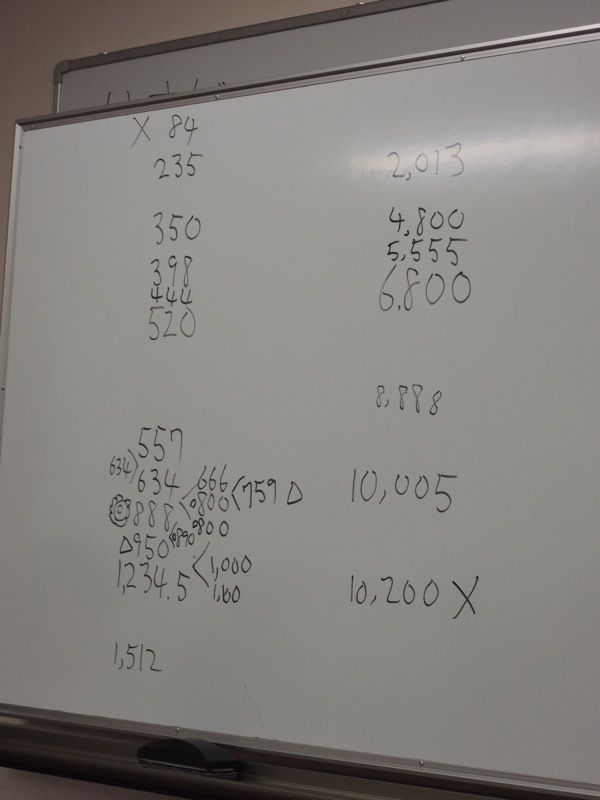 X 84
235
350
398
444
520
557
634
634
666
888
800
759 △
△950
890
800
1,234.5
1,000
1,100
1,512
2,013
4,800
5,555
6,800
8,888
10,005
10,200 X